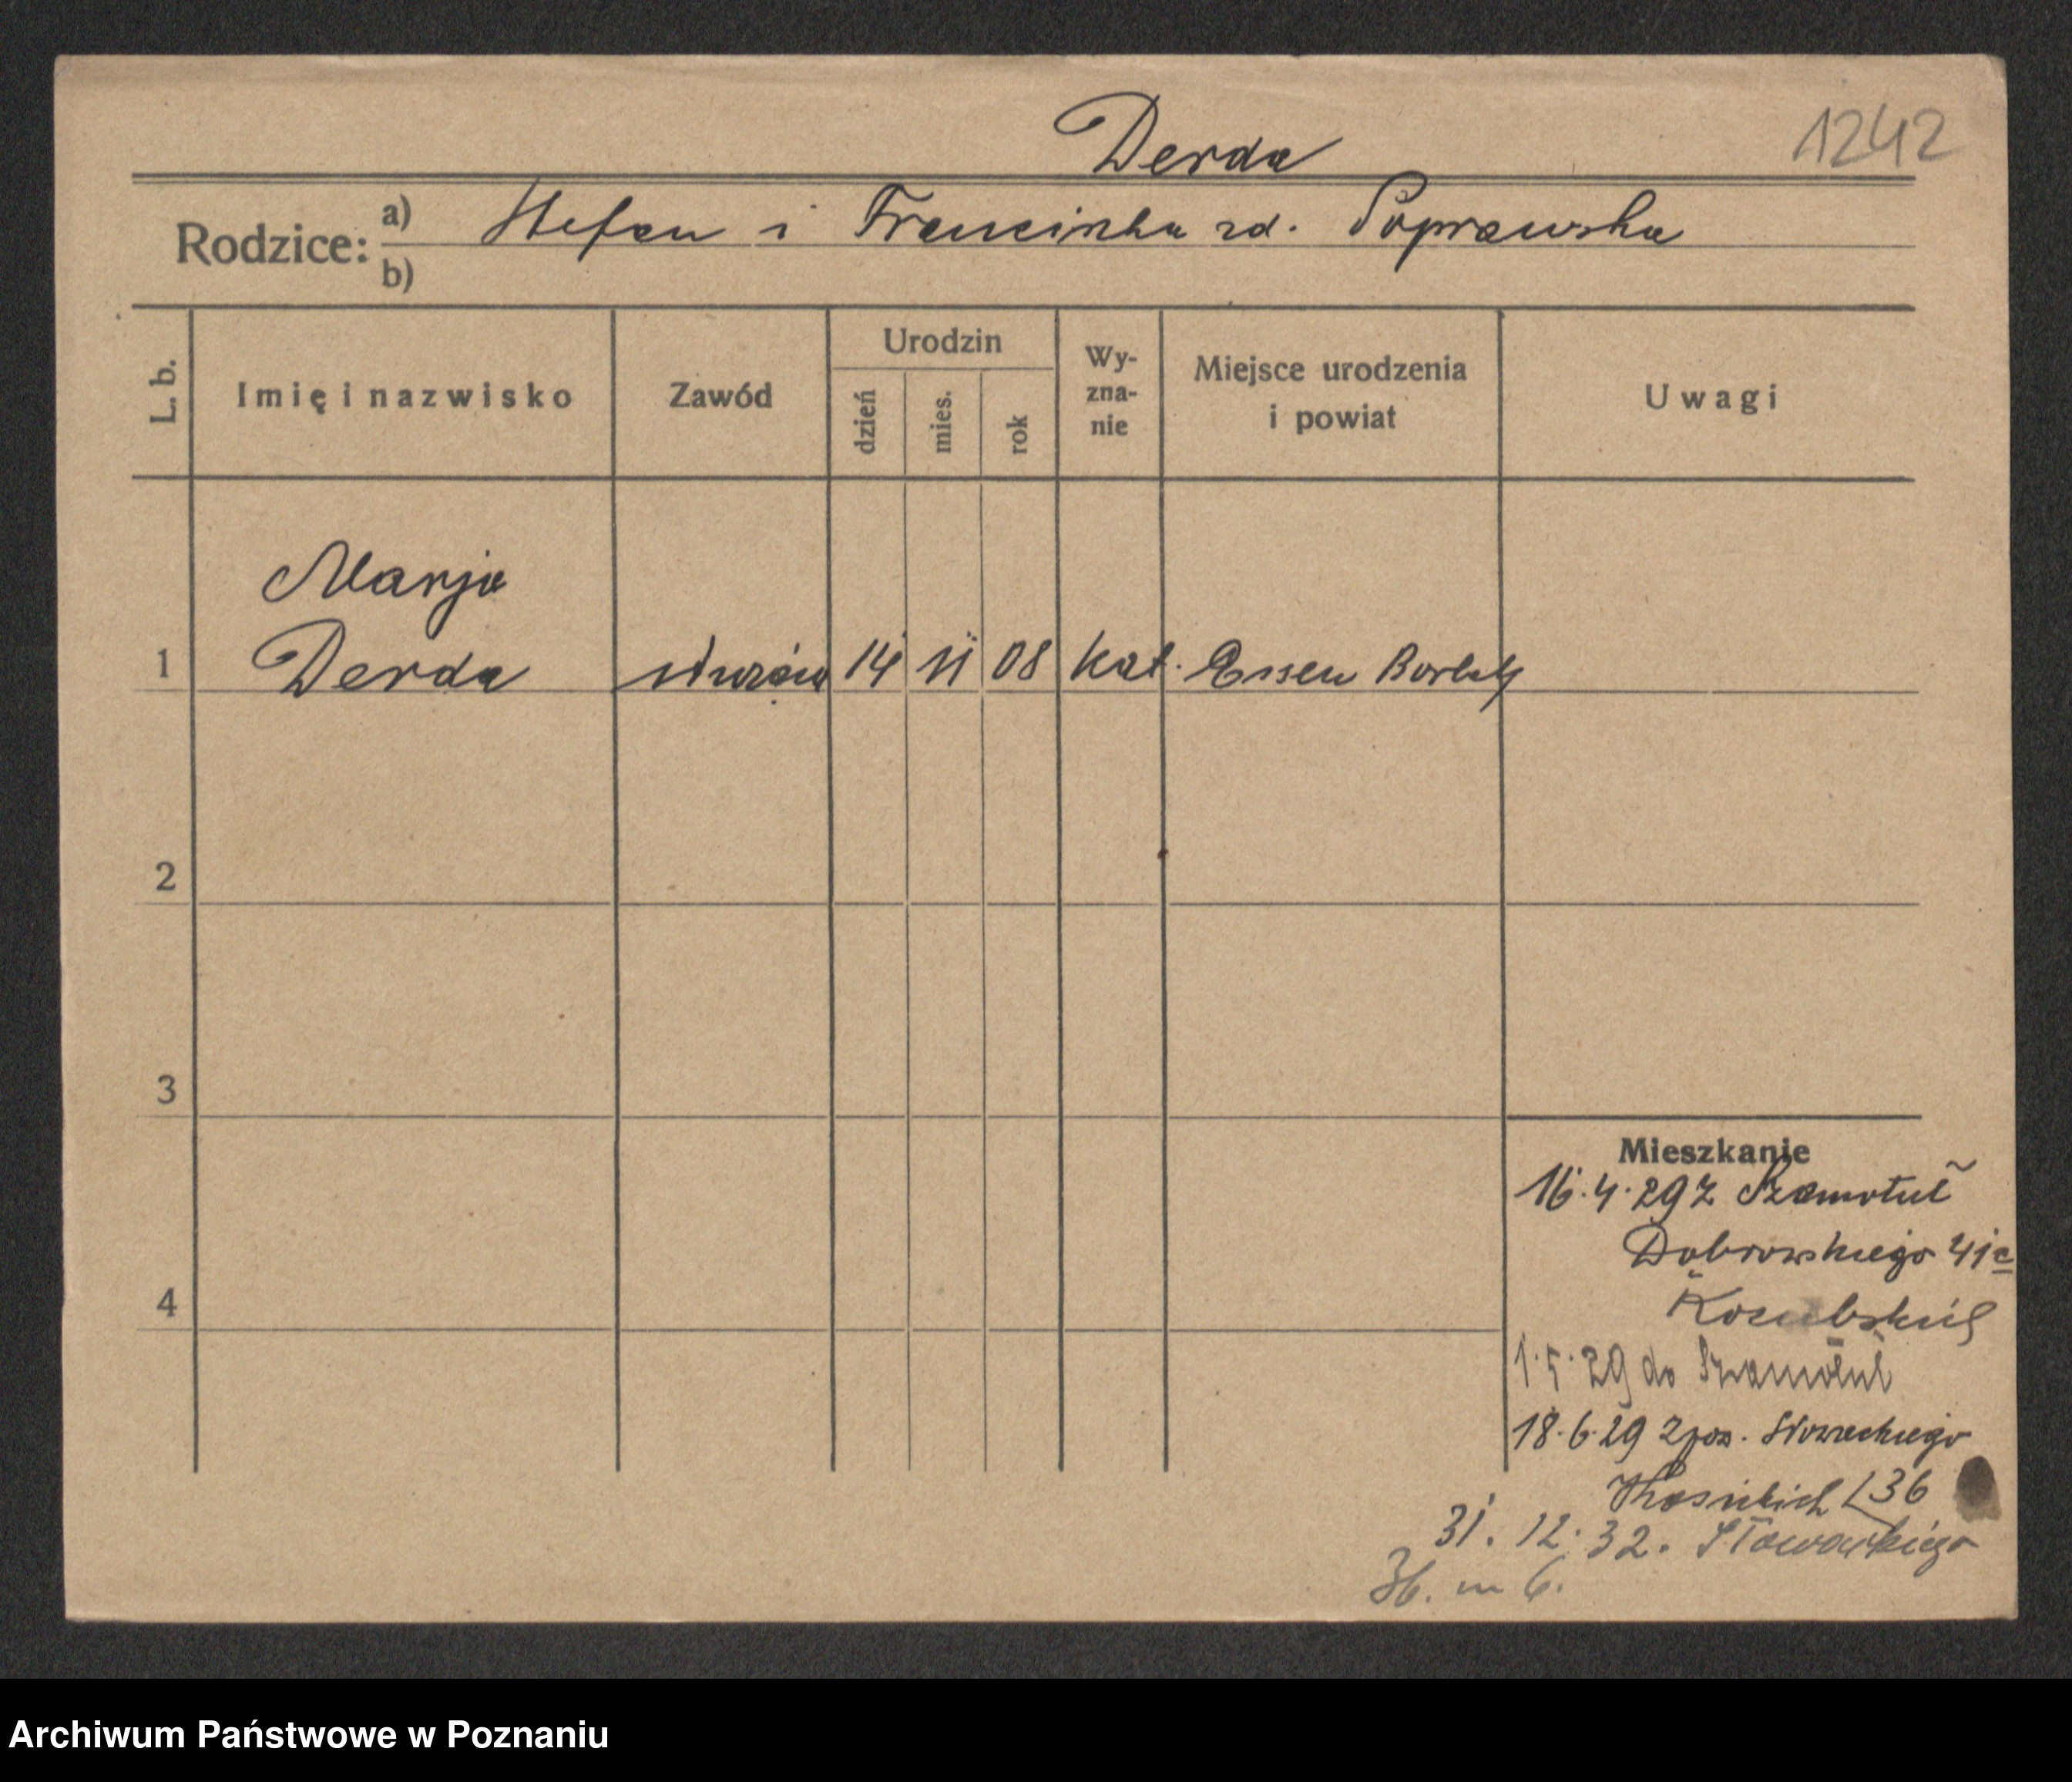 Derda
1242
Rodzice: a) Stefan i Franciszka zd. Poprawska
b)
L. b. Imię i nazwisko Zawód Urodzin dzień mies. rok Wyznanie Miejsce urodzenia i powiat Uwagi
Marja
1 Derda służąca 14 11 08 kat. Essen
2
3
4
Mieszkanie
16.4.29 z Szamotuł
Dąbrowskiego 41a
1.5.29 do Szamotuł
18.6.29 z pow. Słowackiego
36
31. 12. 32. Słowackiego
36. m 6.
Archiwum Państwowe w Poznaniu